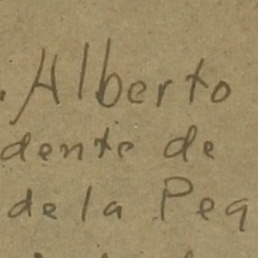 . Alberto
dente de
de la Peq